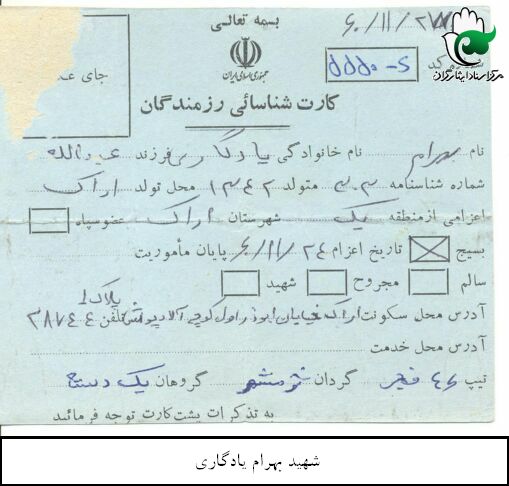 بسمه تعالی
جمهوری اسلامی ایران
مرکز اسناد ایثارگران
جای
کارت شناسائی رزمندگان
نام بهرام نام خانوادگی یادگاری فرزند عبدالله
شماره شناسنامه ۳۰۳ متولد ۱۳۴۲ محل تولد اراک
اعزامی از منطقه یک شهرستان اراک عضو سپاه
بسیج تاریخ اعزام ۶۰/۱۱/۲۴ پایان مأموریت
سالم مجروح شهید
آدرس محل سکونت اراک خیابان ابوذر اول کوچه پلاک ۱ تلفن ۳۸۷۴۴
آدرس محل خدمت
تیپ ۴۶ فجر گردان گروهان یک دسته
به تذکرات پشت کارت توجه فرمائید
شهید بهرام یادگاری